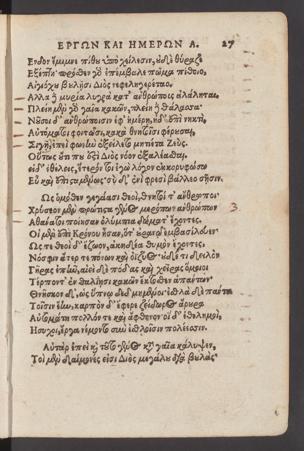 ΕΡΓΩΝ ΚΑΙ ΗΜΕΡΩΝ Α. 27
Ενδον ἔμιμνε πίθου ὑπὸ χείλεσιν, οὐδὲ θύραζε
Εξέπτη· πρόσθεν γὸ ἐπέμβαλε πῶμα πίθοιο,
Αἰγιόχου βουλῇσι Διὸς νεφεληγερέταο.
Αλλα ἢ μυρία λυγρὰ κατ' ἀνθρώπους ἀλάληται.
Πλείη μὲν γὸ γαῖα κακῶν, πλείη ἢ θάλασσα·
Νοῦσοι δ' ἀνθρώποισιν ἐφ' ἡμέρῃ, ἠδ' ἐπὶ νυκτὶ,
Αὐτόματοι φοιτῶσι, κακὰ θνητοῖσι φέρουσαι,
Σιγῇ, ἐπεὶ φωνὴν ἐξείλετο μητίετα Ζεύς.
Οὕτως οὔτι που ἐστὶ Διὸς νόον ἐξαλέασθαι.
εἰ δ' ἐθέλεις, ἕτερόν τοι ἐγὼ λόγον ἐκκορυφώσω
Εὖ καὶ ἐπισταμένως· σὺ δ' ἐνὶ φρεσὶ βάλλεο σῇσιν.
Ως ὁμόθεν γεγάασι θεοὶ, θνητοί τ' ἄνθρωποι·
Χρύσεον μὲν πρώτιστα γένος μερόπων ἀνθρώπων 3
Αθάνατοι ποίησαν ὀλύμπια δώματ' ἔχοντες.
Οἱ μὲν ἐπὶ Κρόνου ἦσαν, ὅτ' οὐρανῷ ἐμβασίλευεν·
Ως τε θεοὶ δ' ἔζωον, ἀκηδέα θυμὸν ἔχοντες,
Νόσφιν ἄτερ τε πόνων καὶ ὀϊζύος· οὐδέ τι δειλὸν
Γῆρας ἐπῆν, αἰεὶ δὲ πόδας καὶ χεῖρας ὁμοῖοι
Τέρποντ' ἐν θαλίῃσι κακῶν ἔκτοσθεν ἁπάντων·
Θνῆσκον δ', ὡς ὕπνῳ δεδμημένοι· ἐσθλὰ δὲ πάντα
Τοῖσιν ἔην, καρπὸν δ' ἔφερε ζείδωρος ἄρουρα
Αὐτομάτη πολλόν τε καὶ ἄφθονον· οἱ δ' ἐθελημοὶ,
Ησυχοι, ἔργα νέμοντο σὺν ἐσθλοῖσιν πολέεσσιν.
Αὐτὰρ ἐπεί κεν τοῦτο γένος κατὰ γαῖα κάλυψεν,
Τοὶ μὲν δαίμονές εἰσι Διὸς μεγάλου διὰ βουλὰς